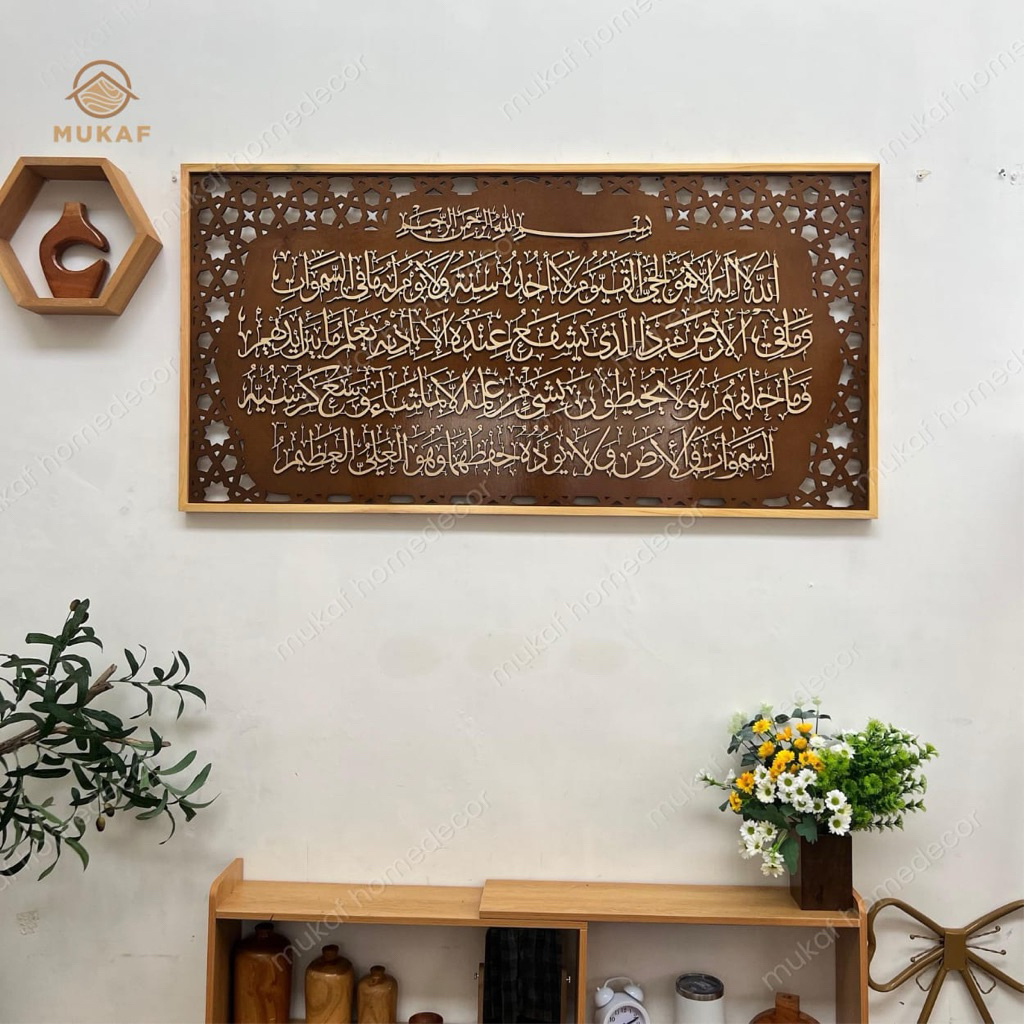 MUKAF
بسم الله الرحمن الرحيم
الله لا إله إلا هو الحي القيوم لا تأخذه سنة ولا نوم له ما في السموات
وما في الأرض من ذا الذي يشفع عنده إلا بإذنه يعلم ما بين أيديهم
وما خلفهم ولا يحيطون بشيء من علمه إلا بما شاء وسع كرسيه
السموات والأرض ولا يؤده حفظهما وهو العلي العظيم
mukaf homedecor
mukaf homedecor
mukaf homedecor
mukaf homedecor
mukaf homedecor
mukaf homedecor
mukaf homedecor
mukaf homedecor